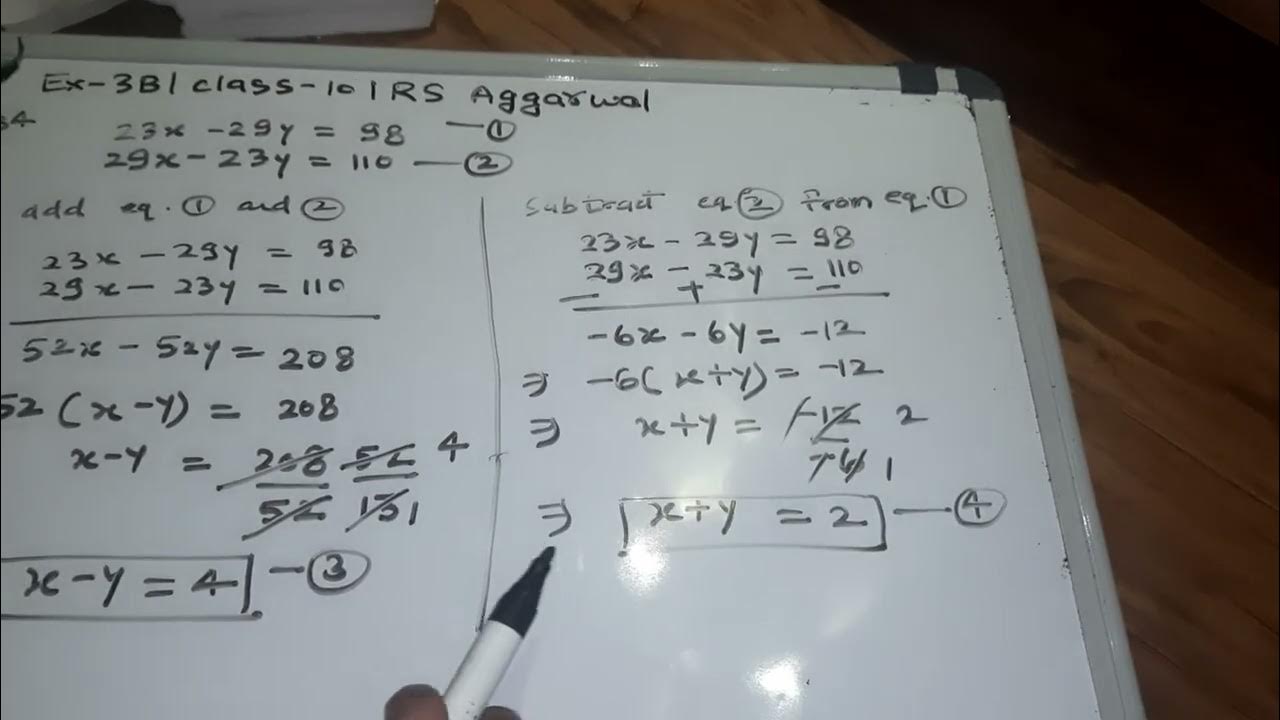 Ex-3B| class-10 | RS Aggarwal
23x - 29y = 98 —①
29x - 23y = 110 —②
add eq. ① and ②
23x - 29y = 98
29x - 23y = 110
52x - 52y = 208
52 (x-y) = 208
x-y = 208/52 52/13 4/1
x-y = 4 —③
Subtract eq ② from eq.①
23x - 29y = 98
29x - 23y = 110
- + -
-6x - 6y = -12
⇒ -6(x+y) = -12
⇒ x+y = -12/-6 2/1
⇒ x+y = 2 —④